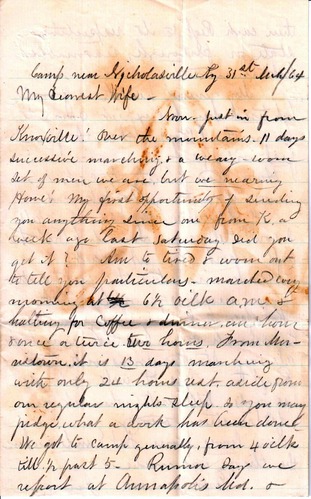 Camp near Nicholasville Ky 31st Mch/64
My Dearest Wife -
Now just in from
Knoxville! Over the mountains. 11 days
successive marching, & a weary-worn
set of men we are, but we nearing
Home! My first opportunity of sending
you anything since one from K a
week ago last Saturday Did you
get it? Am to tired & worn out
to tell you particulars - marched every
morning at 6½ oclk a.m. &
halting for Coffee & dinner, an hour
& once or twice two hours. From
it is 13 days marching
with only 24 hours rest, aside from
our regular nights sleep. So you may
judge, what a work has been done!
We got to camp generally, from 4 oclk
till ½ past 5 - Rumor says we
report at Annapolis Md. &